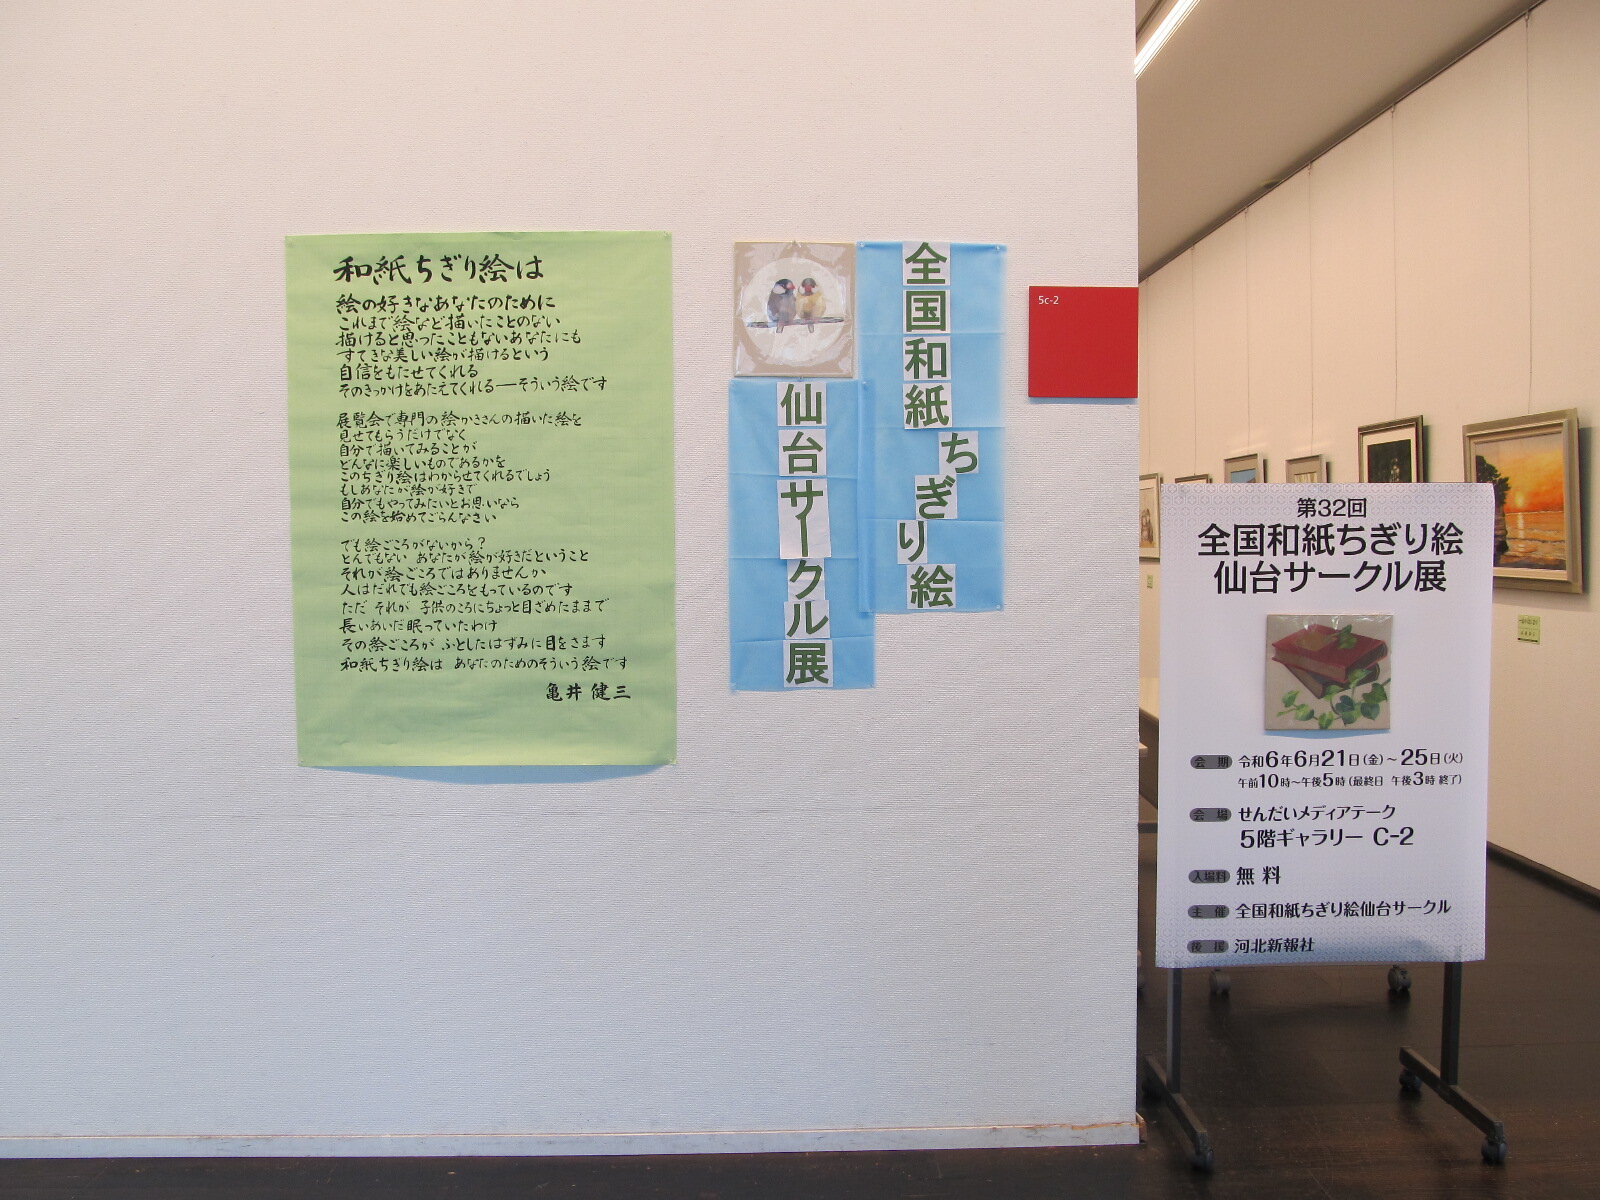 和紙ちぎり絵は
絵の好きなあなたのために
これまで絵など描いたことのない
描けると思ったこともないあなたにも
すてきな美しい絵が描けるという
自信をもたせてくれる
そのきっかけをあたえてくれる――そういう絵です
展覧会で専門の絵かきさんの描いた絵を
見せてもらうだけでなく
自分で描いてみることが
どんなに楽しいものであるかを
このちぎり絵はわからせてくれるでしょう
もしあなたが絵が好きで
自分でもやってみたいとお思いなら
この絵を始めてごらんなさい
でも絵ごころがないから？
とんでもない あなたが絵が好きだということ
それが絵ごころではありませんか
人はだれでも絵ごころをもっているのです
ただ それが 子供のころにちょっと目ざめたままで
長いあいだ眠っていたわけ
その絵ごころが ふとしたはずみに目をさます
和紙ちぎり絵は あなたのためのそういう絵です
亀井 健三
全国和紙ちぎり絵
仙台サークル展
5c-2
第32回
全国和紙ちぎり絵
仙台サークル展
会 期 令和6年6月21日(金)～25日(火)
午前10時～午後5時(最終日 午後3時 終了)
会 場 せんだいメディアテーク
5階ギャラリー C-2
入場料 無 料
主 催 全国和紙ちぎり絵仙台サークル
後 援 河北新報社